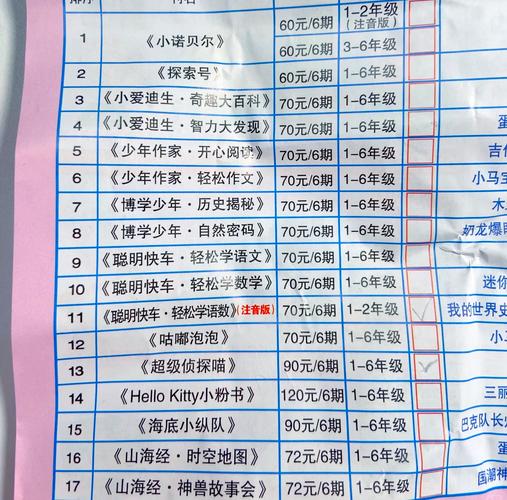 1 《小诺贝尔》 60元/6期 1-2年级(注音版)
60元/6期 3-6年级
2 《探索号》 60元/6期 1-6年级
3 《小爱迪生·奇趣大百科》 70元/6期 1-6年级
4 《小爱迪生·智力大发现》 70元/6期 1-6年级
5 《少年作家·开心阅读》 70元/6期 1-6年级
6 《少年作家·轻松作文》 70元/6期 1-6年级 小马宝
7 《博学少年·历史揭秘》 70元/6期 1-6年级 木
8 《博学少年·自然密码》 70元/6期 1-6年级 奶龙爆
9 《聪明快车·轻松学语文》 70元/6期 1-6年级
10 《聪明快车·轻松学数学》 70元/6期 1-6年级 迷你
11 《聪明快车·轻松学语数》(注音版) 70元/6期 1-2年级 我的世界史
12 《咕嘟泡泡》 70元/6期 1-6年级
13 《超级侦探喵》 90元/6期 1-6年级
14 《Hello Kitty小粉书》 120元/6期 1-6年级 三丽
15 《海底小纵队》 90元/6期 1-6年级 巴克队长
16 《山海经·时空地图》 72元/6期 1-6年级
17 《山海经·神兽故事会》 72元/6期 1-6年级 国潮神